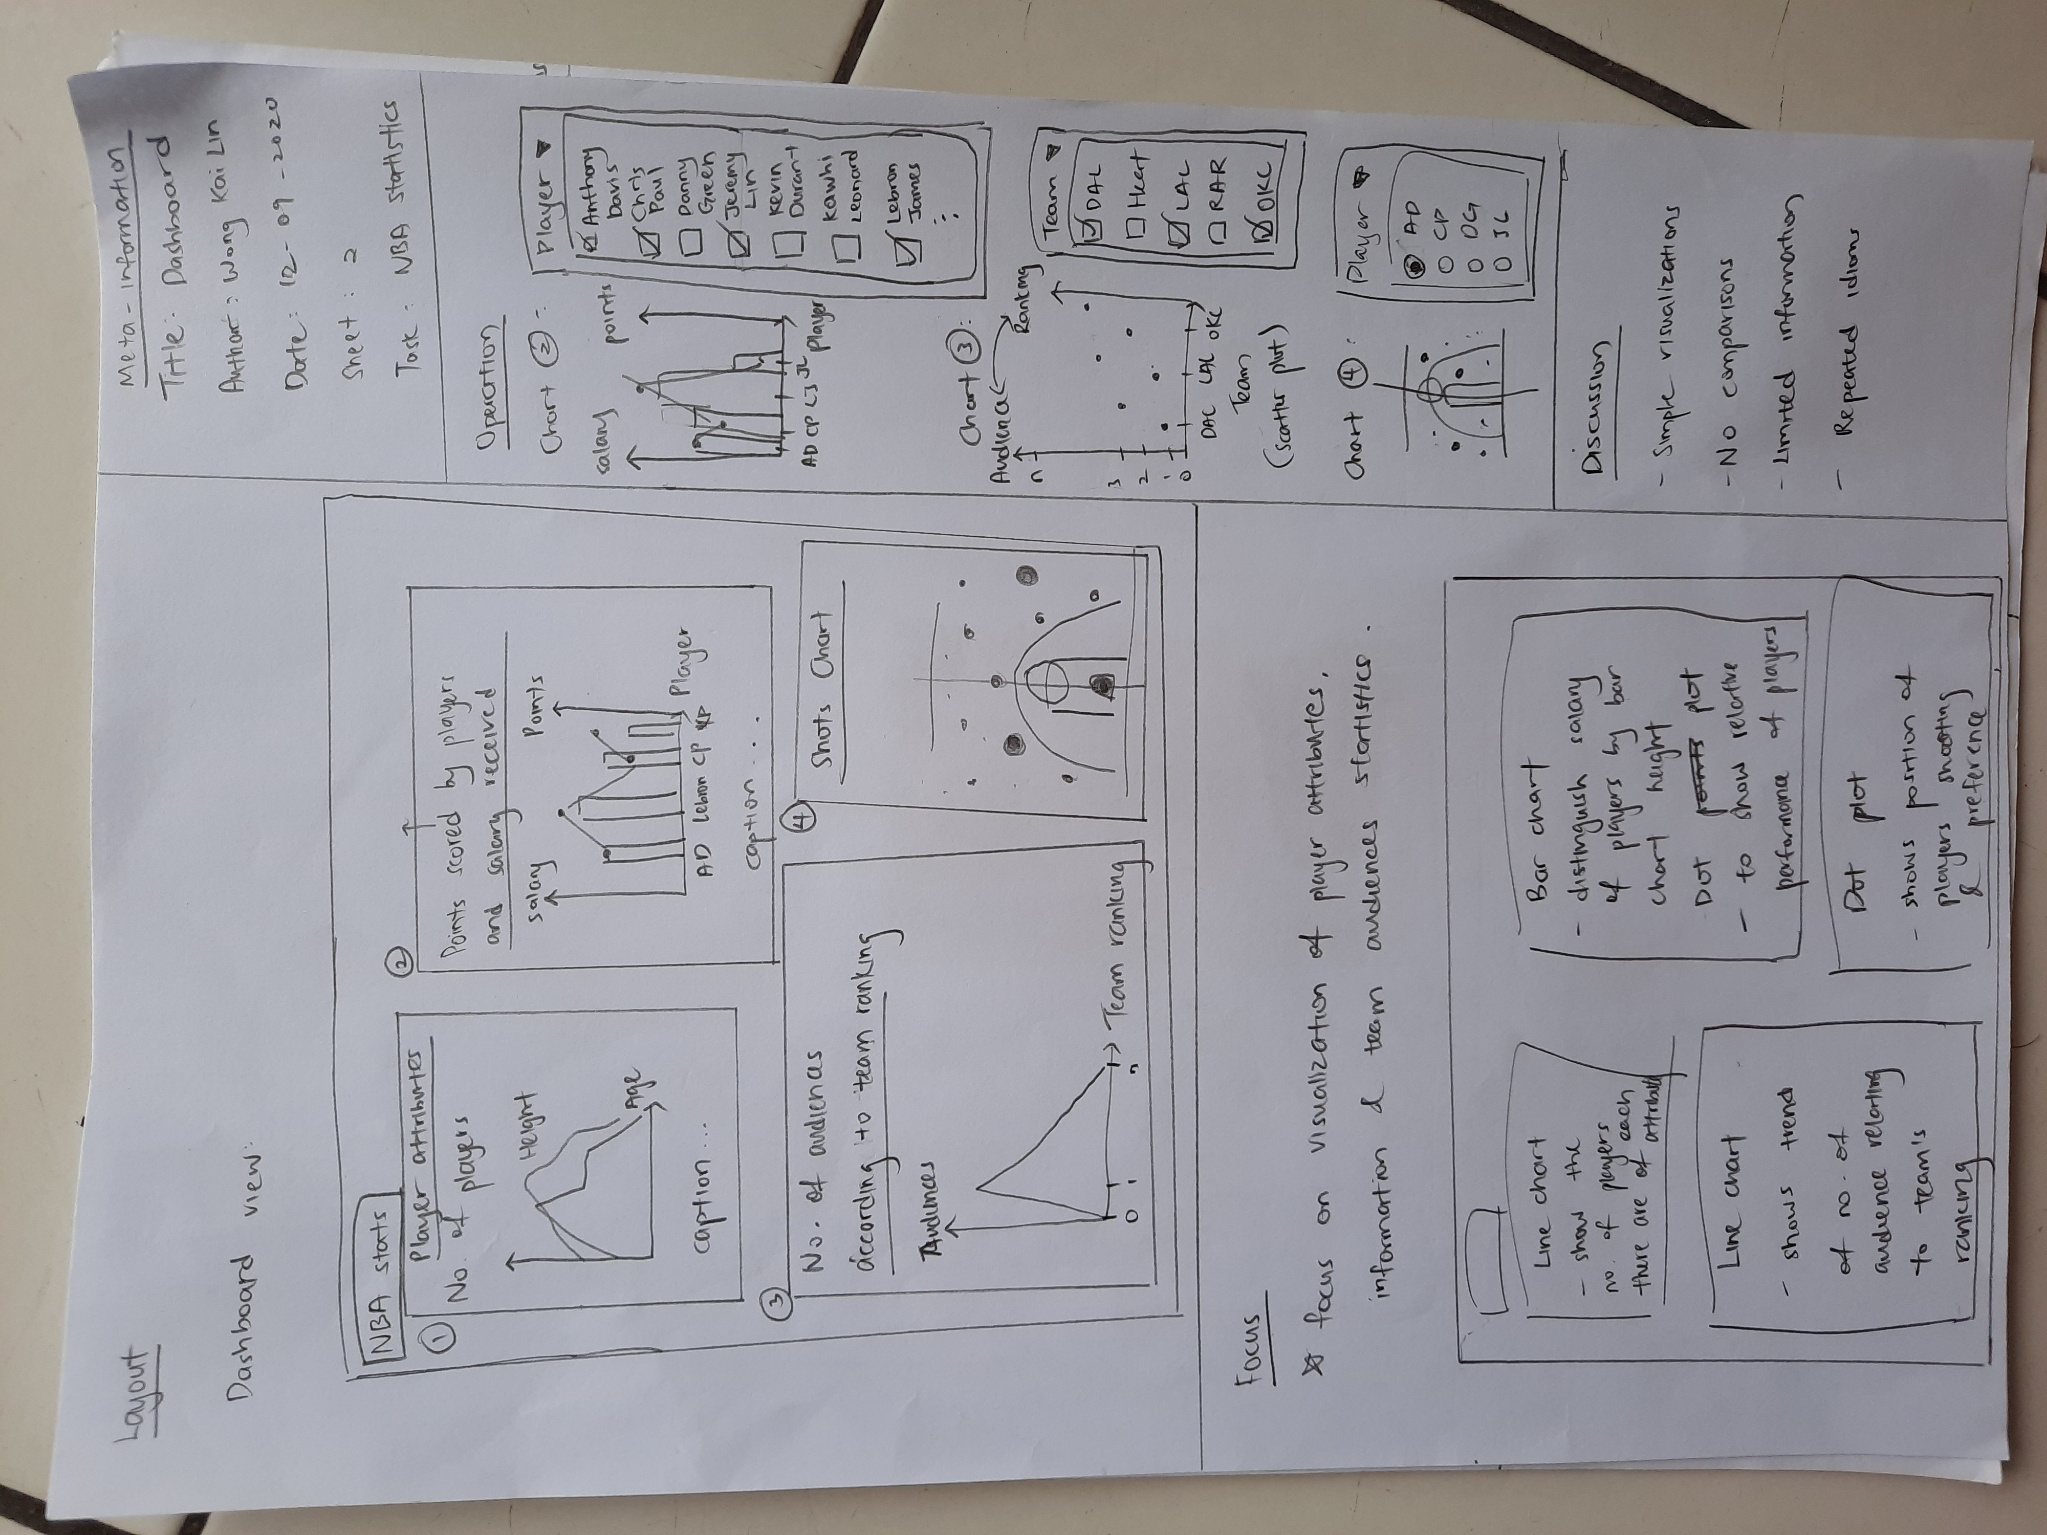 Layout
Dashboard view:
NBA stats
1
Player attributes
No. of players
Height
Age
caption ...
2
Points scored by players
and salary received
salary
Points
AD Lebron CP
Player
caption ...
3
No. of audiences
according to team ranking
Audiences
0 1 n
Team ranking
4
Shots Chart
Focus
focus on visualization of player attributes,
information & team audiences statistics.
Line chart
- show the
no. of players
there are of each
attribute
Bar chart
- distinguish salary
of players by bar
chart height
Dot points plot
- to show relative
performance of players
Line chart
- shows trend
of no. of
audience relating
to team's
ranking
Dot plot
- shows position of
players shooting
& preference
Meta-information
Title: Dashboard
Author: Wong Kai Lin
Date: 12-09-2020
Sheet: 2
Task: NBA statistics
Operation
Chart 2:
salary
points
AD CP LJ JL
player
Player
Anthony
Davis
Chris
Paul
Danny
Green
Jeremy
Lin
Kevin
Durant
Kawhi
Leonard
Lebron
James
Chart 3:
Audience
Ranking
n
3
2
1
0
DAL LAL OKC
Team
(scatter plot)
Team
DAL
Heat
LAL
RAR
OKC
Chart 4:
Player
AD
CP
DG
JL
Discussion
- Simple visualizations
- No comparisons
- Limited information
- Repeated idioms